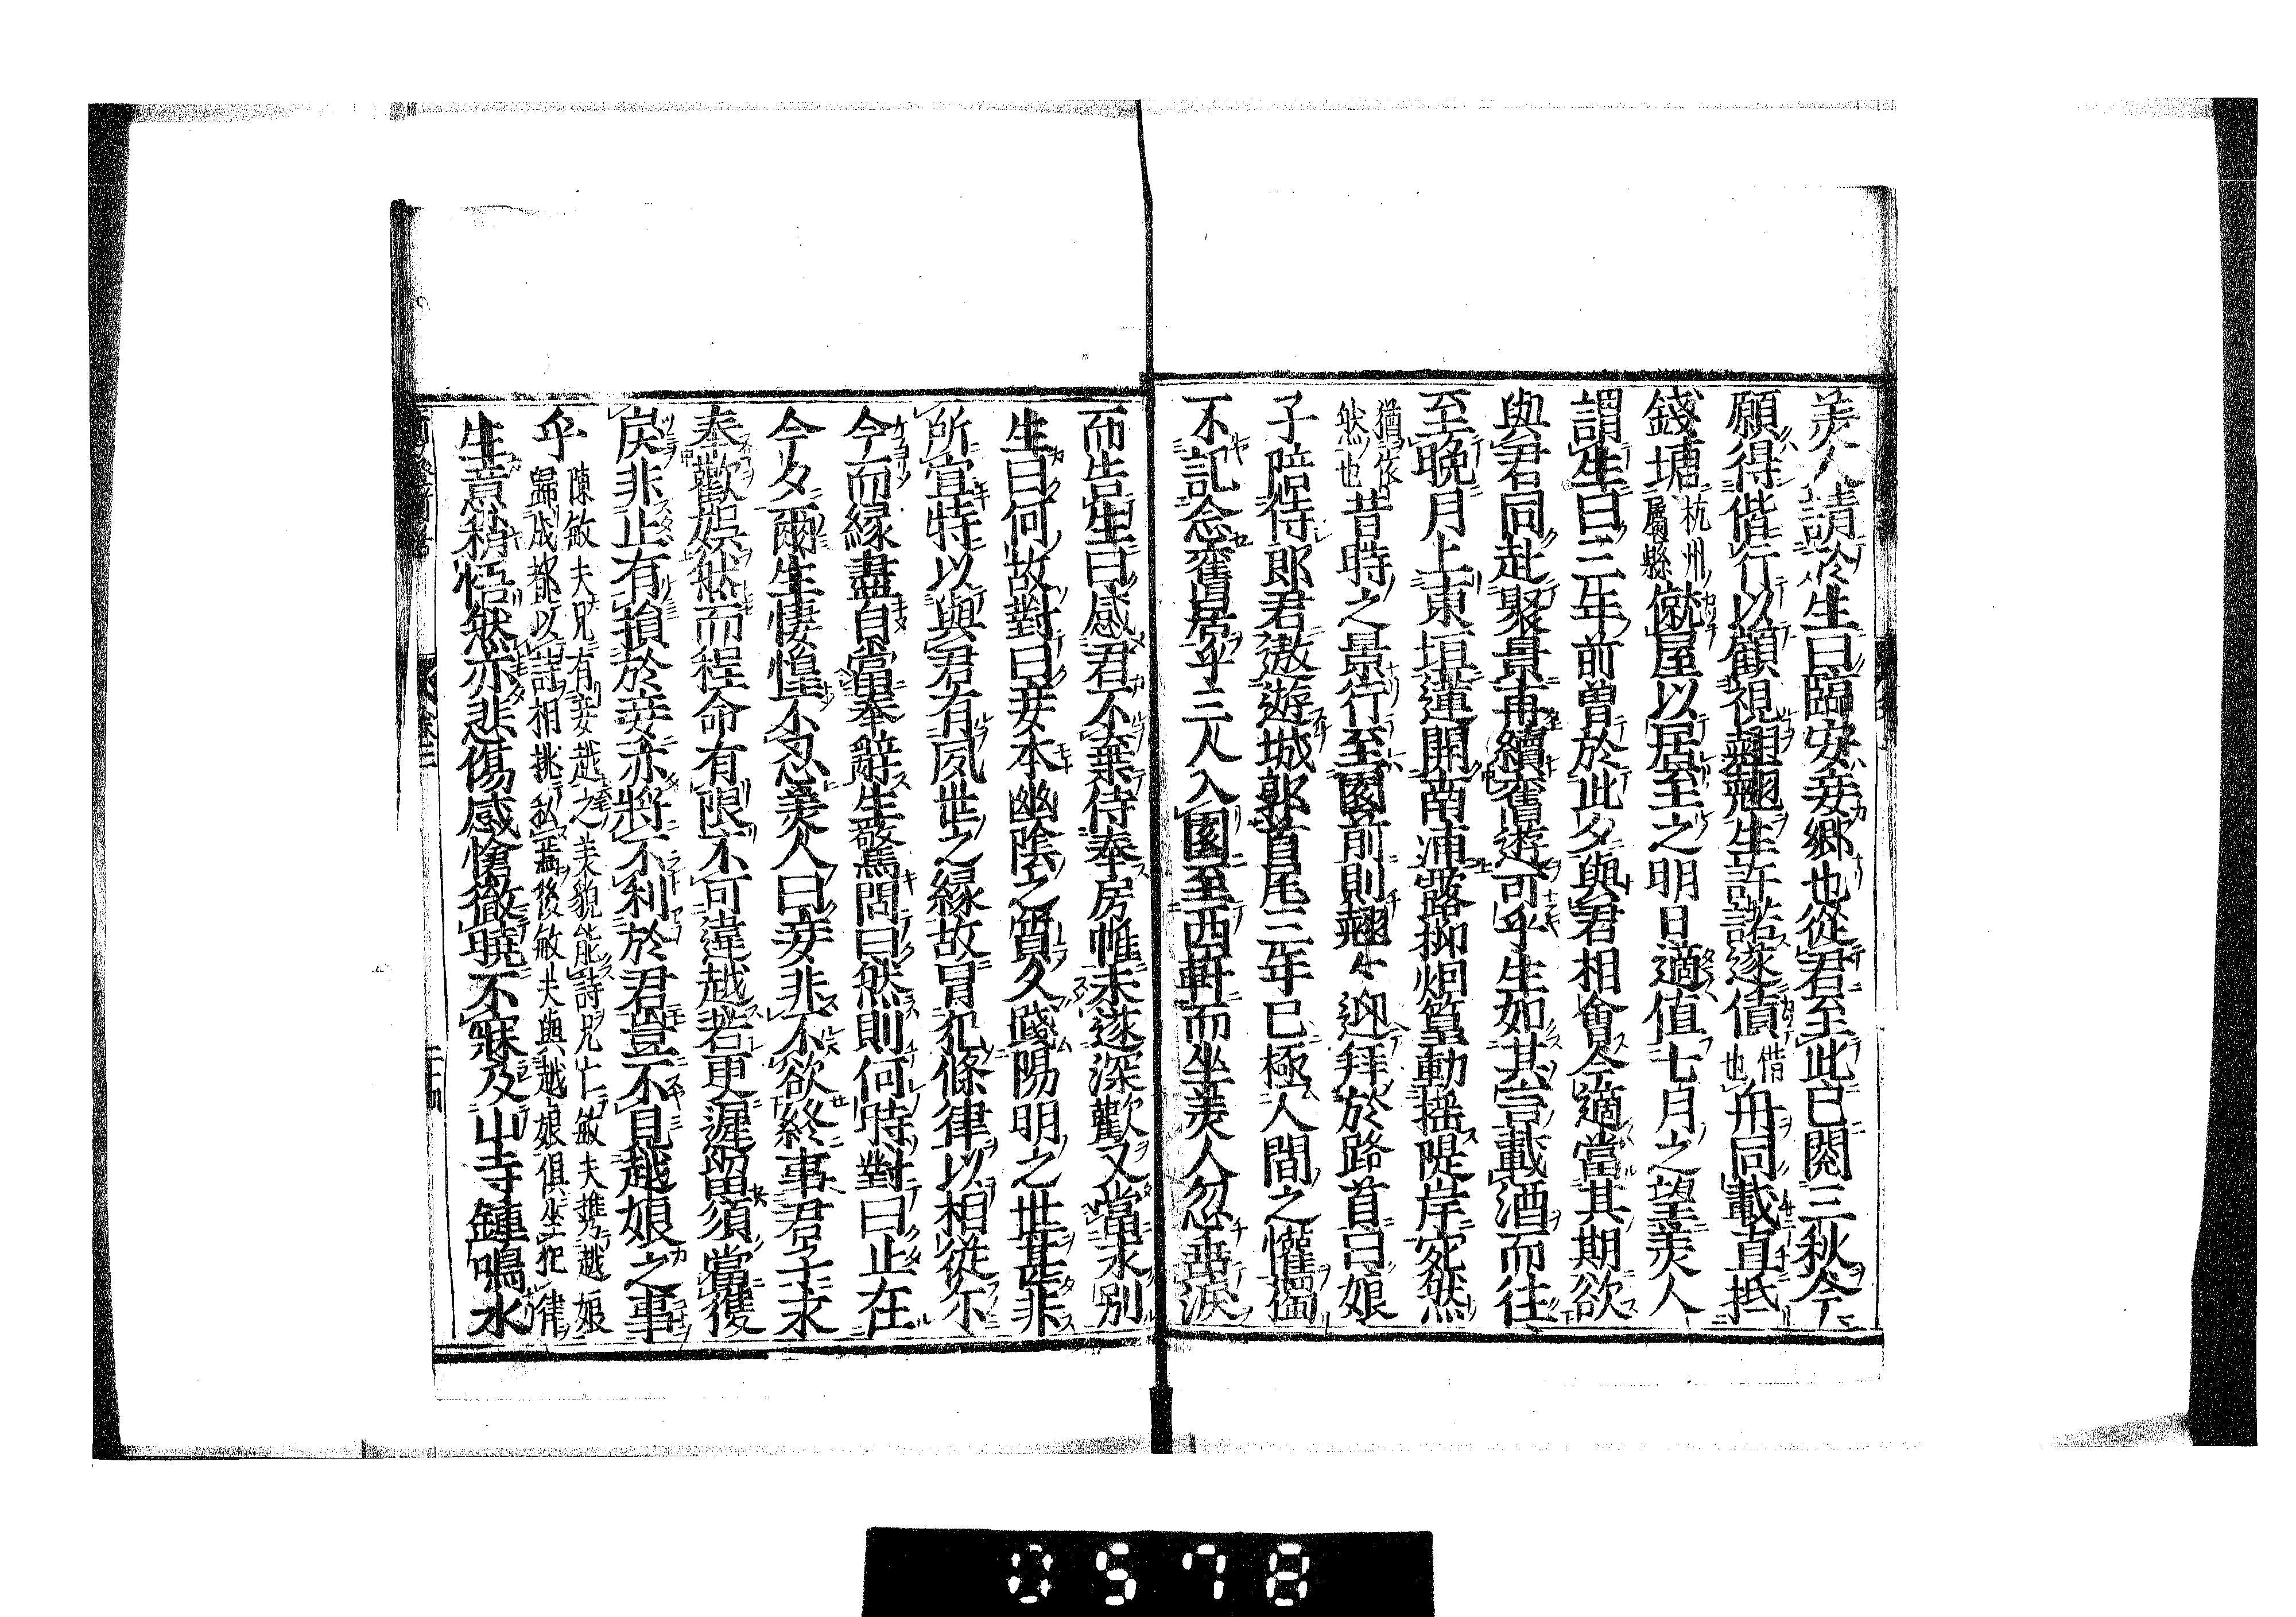 美人請於生曰臨安妾郷也從君至此已閱三秋今
願得偕行以顧視翹翹生許諾遂債借也舟同載直抵
錢塘杭州属縣僦屋以居至之明日適值七月之望美人
謂生曰三年前曽於此夕與君相會今適當其期欲
與君同赴聚景再續舊遊可乎生如其言載酒而往
至晩月上東垣蓮開南浦露柳烟篁動揺隄岸宛然
猶依然也昔時之景行至園前則翹々迎拜於路首曰娘
子陪侍郎君遨遊城郭首尾三年已極人間之懽獨
不記念舊居乎三人入園至西軒而坐美人忽垂淚
而告生曰感君不棄侍奉房帷未遂深歡又當永別
生曰何故對曰妾本幽陰之質久踐陽明之世甚非
所宜特以與君有夙世之縁故冒犯條律以相從尓
今而縁盡自當奉辭生驚問曰然則何時對曰止在
今夕爾生悽惶不忍美人曰妾非不欲終事君子永
奉歡娯然而程命有限不可違越若更遲留須當獲
戻非止有損於妾亦將不利於君豈不見越娘之事
乎陳敏夫兄有妾越之美貌能詩兄亡敏夫携越娘歸成都以詩相挑私焉後敏夫與越娘俱坐犯律
生意稍悟然亦悲傷感愴徹曉不寐及山寺鐘鳴水
卷三